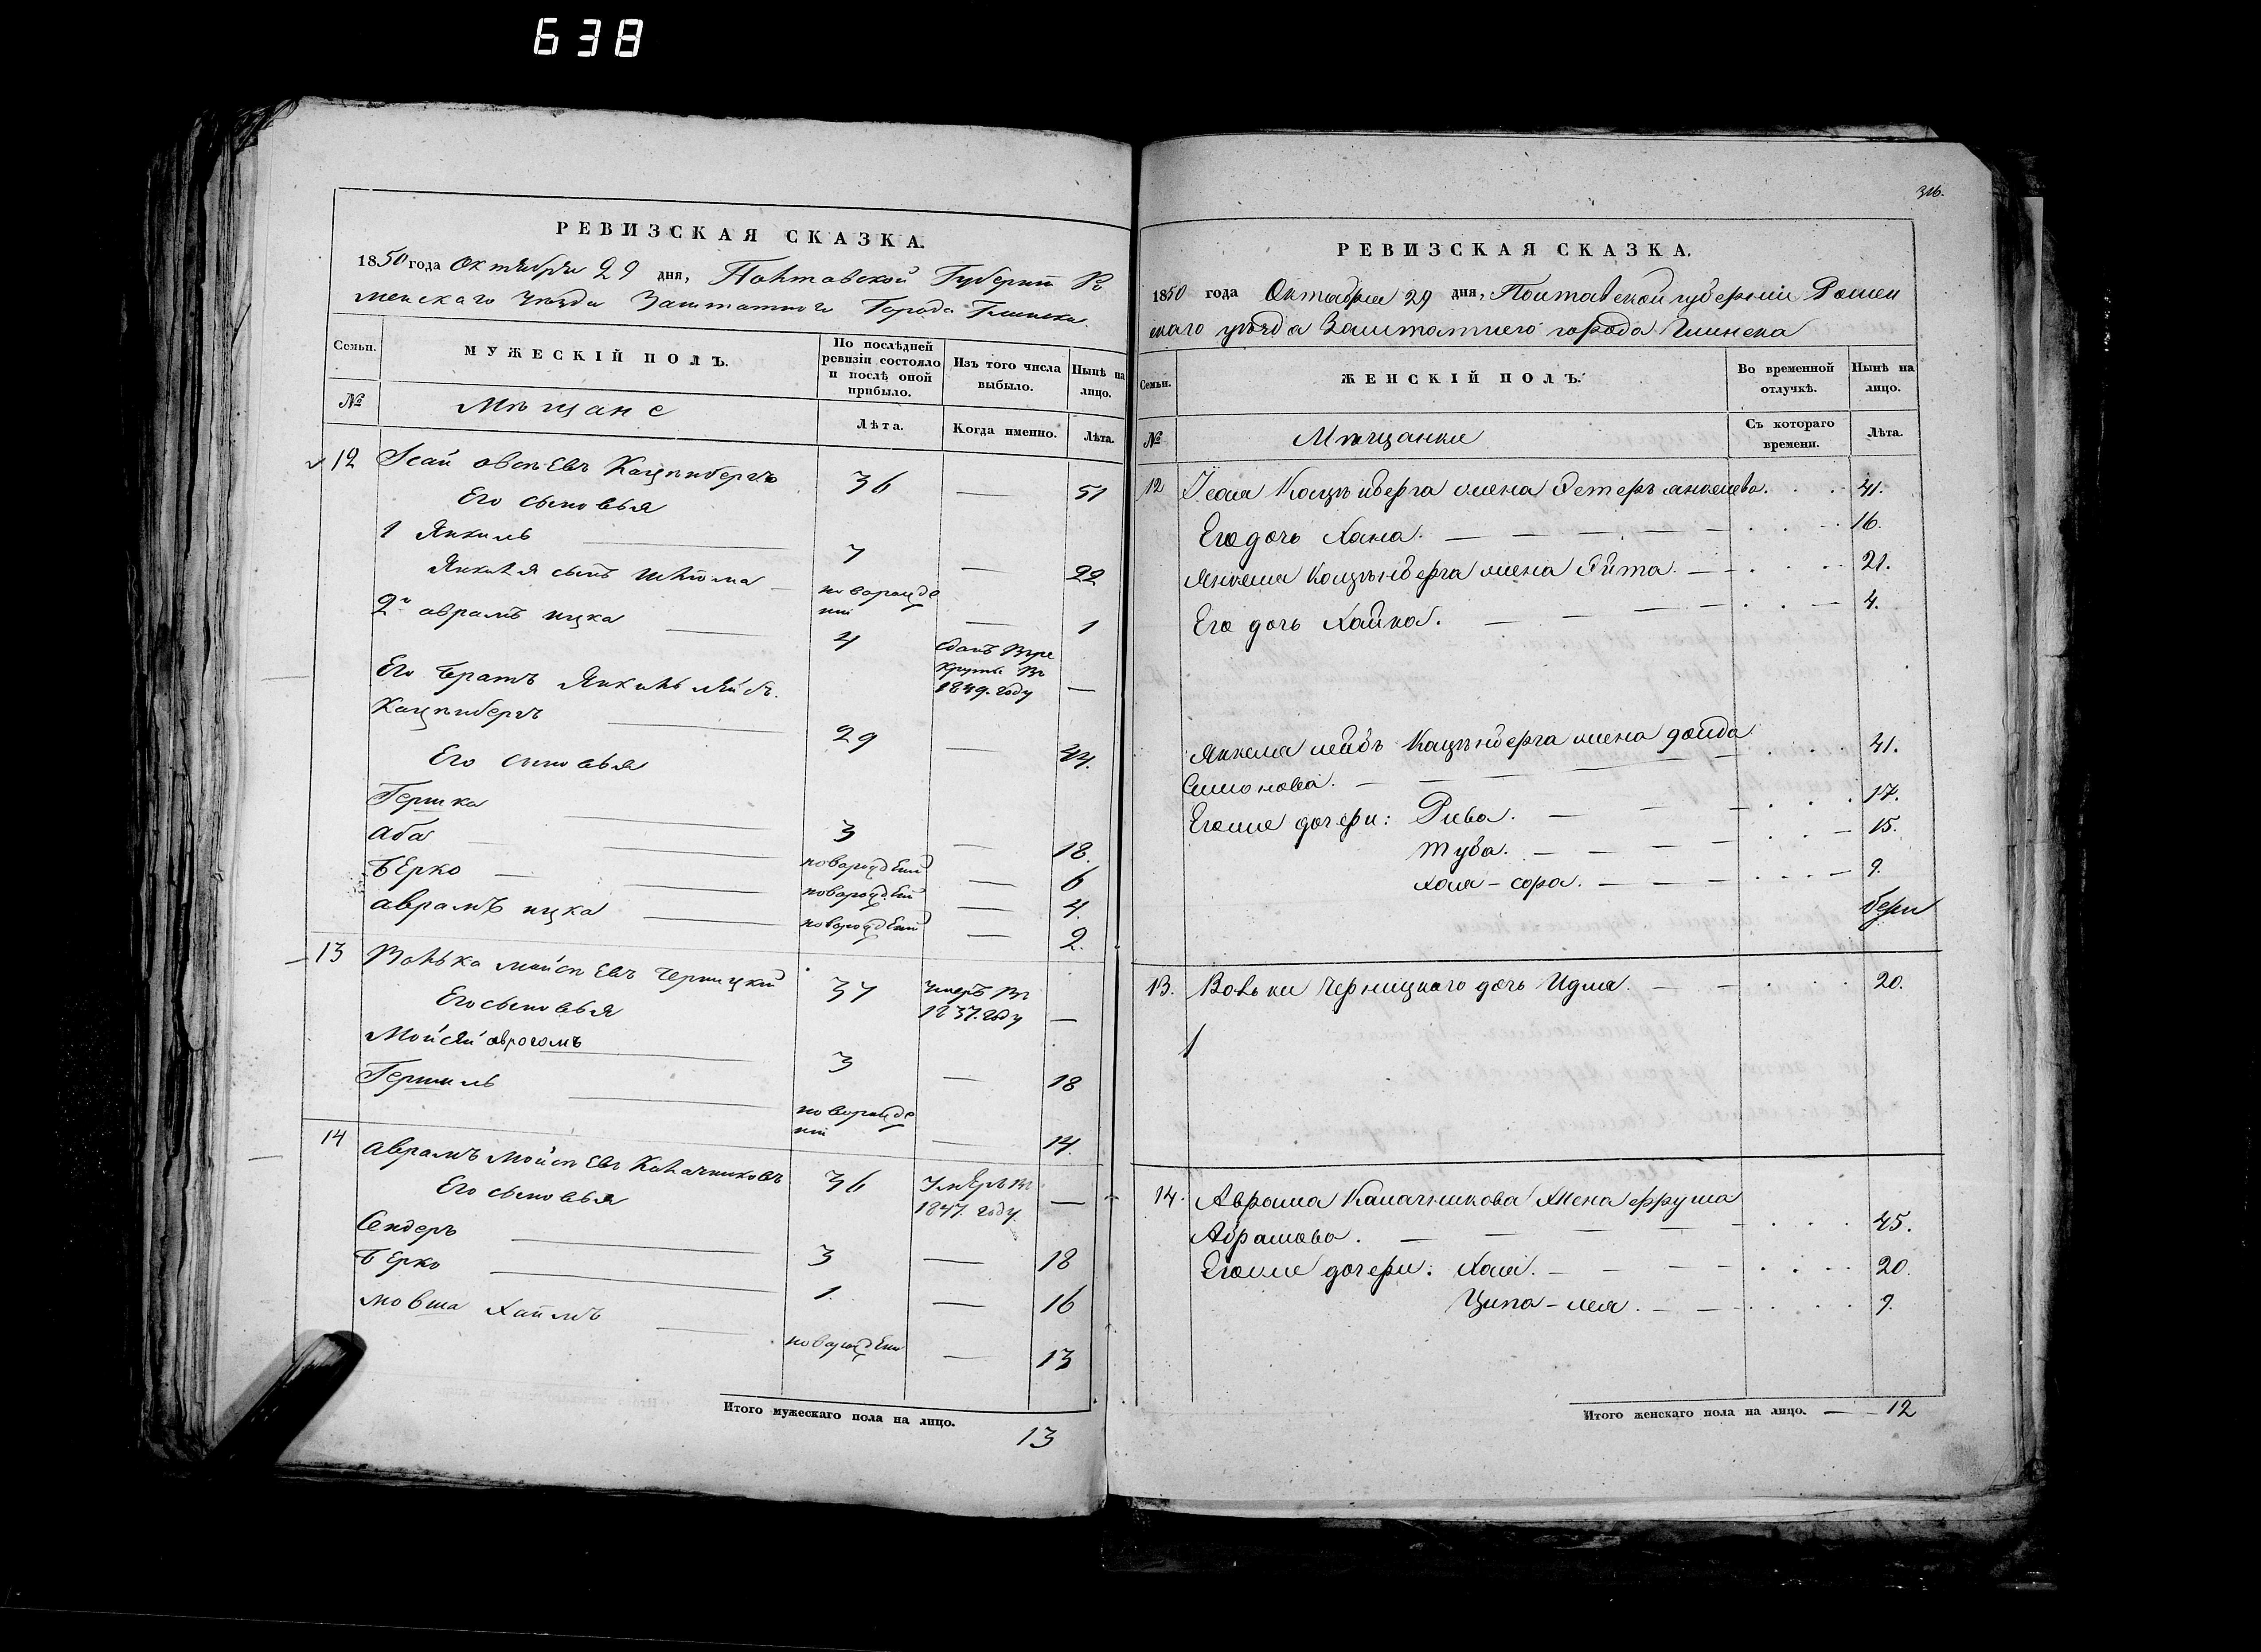 638
РЕВИЗСКАЯ СКАЗКА.
1850 года Октября 29 дня, Полтавской Губернии Ро
менскаго уезда Заштатного Города Глинска.
Семьи.
МУЖЕСКІЙ ПОЛЪ.
По послѣдней ревизіи состояло и послѣ оной прибыло.
Изъ того числа выбыло.
Нынѣ на лицо.
№
Мѣщане
Лѣта.
Когда именно.
Лѣта.
12 Исай Овсѣевъ Кацнибергъ 36 — 51
Его сыновья
1 Янкиль 7 — 22
Янкиля сынъ Шлиома новорожде
ній — 1
2й Аврамъ ицка 4 Сданъ Вре
круты Въ
1849. году —
Его братъ Янкиль лейбъ
Кацнибергъ 29 — 44.
Его сыновья
Гершка 3 — 18.
Аба новорожденій — 6
Берко новорожденій — 4.
Аврамъ ицка новорожденій — 2.
13 Волька мойсѣевъ Черницкій 37 умеръ Въ
1837. году —
Его сыновья
Мойсей аврогомъ 3 — 18
Гершиль новорожде
ній — 14.
14 Аврамъ Мойсѣевъ Калачниковъ 36 Умеръ Въ
1847. году. —
Его сыновья
Сендеръ 3 — 18
Берко 1. — 16
Мовша Хаимъ новорожденій — 13
Итого мужескаго пола на лицо. 13
316.
РЕВИЗСКАЯ СКАЗКА.
1850 года Октября 29 дня, Полтавской губерніи Ромен
скаго уѣзда Заштатнего города Глинска
Семьи.
ЖЕНСКІЙ ПОЛЪ.
Во временной отлучкѣ.
Нынѣ на лицо.
№
Мѣщанки
Съ котораго времени.
Лѣта.
12 Исая Кацнѣберга жена Эстеръ янкелева. 41.
Его дочь Хана. 16.
Янкеля Кацѣнберга жена Эйта. 21.
Его дочь Хайка. 4.
Янкеля лейбъ Кацѣнберга жена двейда
Симонова. 41.
Егоже дочери: Рива. 17.
Туба. 15.
Хая-сора. 9.
13. Вольки Черницкаго дочь Идля. 20.
14. Аврама Калачникова Жена фрума
Абрамова. 45.
Егоже дочери: Хая. 20.
Ципа-лея. 9.
Итого женскаго пола на лицо. — 12